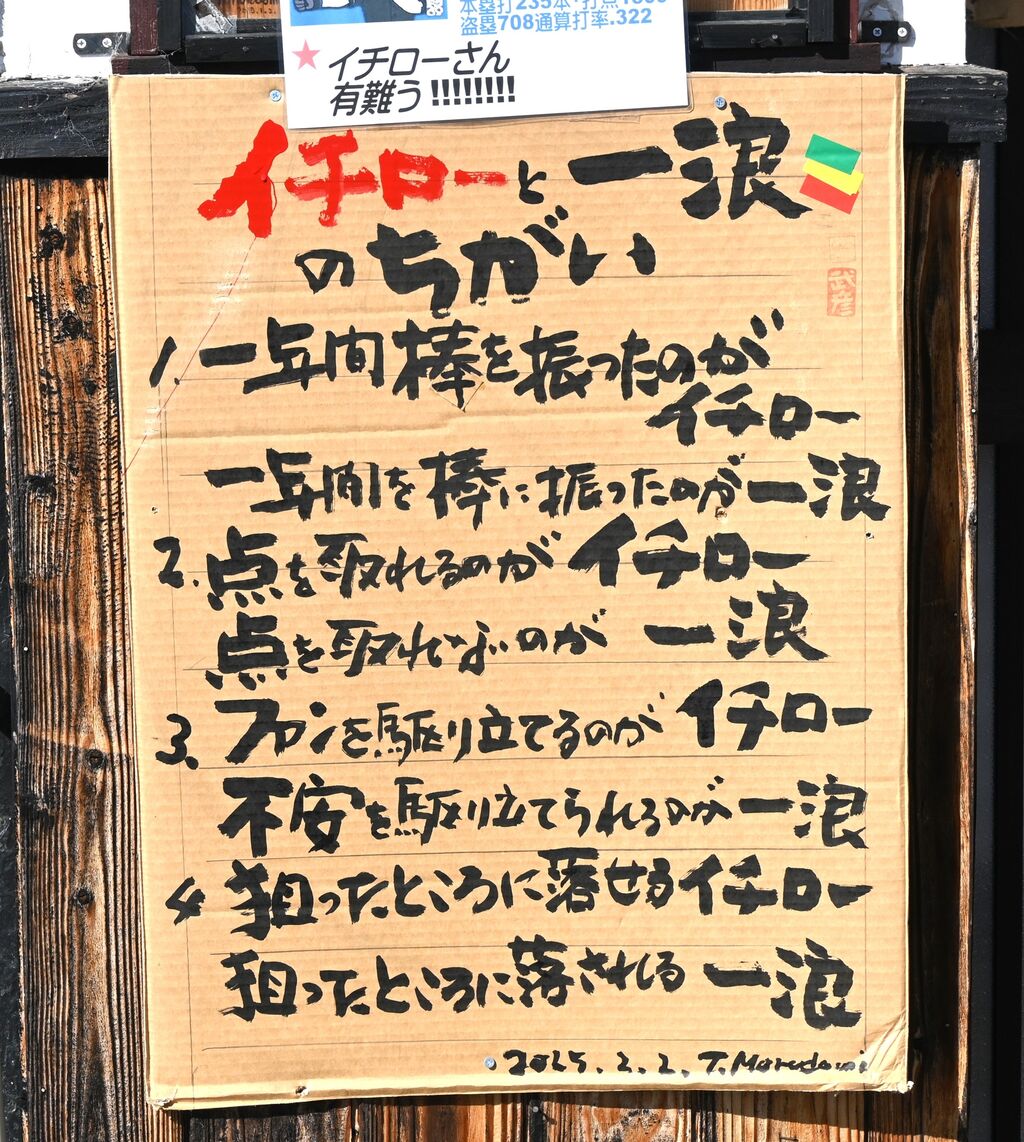 盗塁708通算打率.322
★イチローさん
有難う!!!!!!!!
イチローと一浪
のちがい
1 一年間棒を振ったのが
イチロー
一年間を棒に振ったのが一浪
2. 点を取れるのがイチロー
点を取れないのが一浪
3. ファンを駆り立てるのがイチロー
不安を駆り立てられるのが一浪
4 狙ったところに落せるイチロー
狙ったところに落される一浪
武彦
2025.2.2.